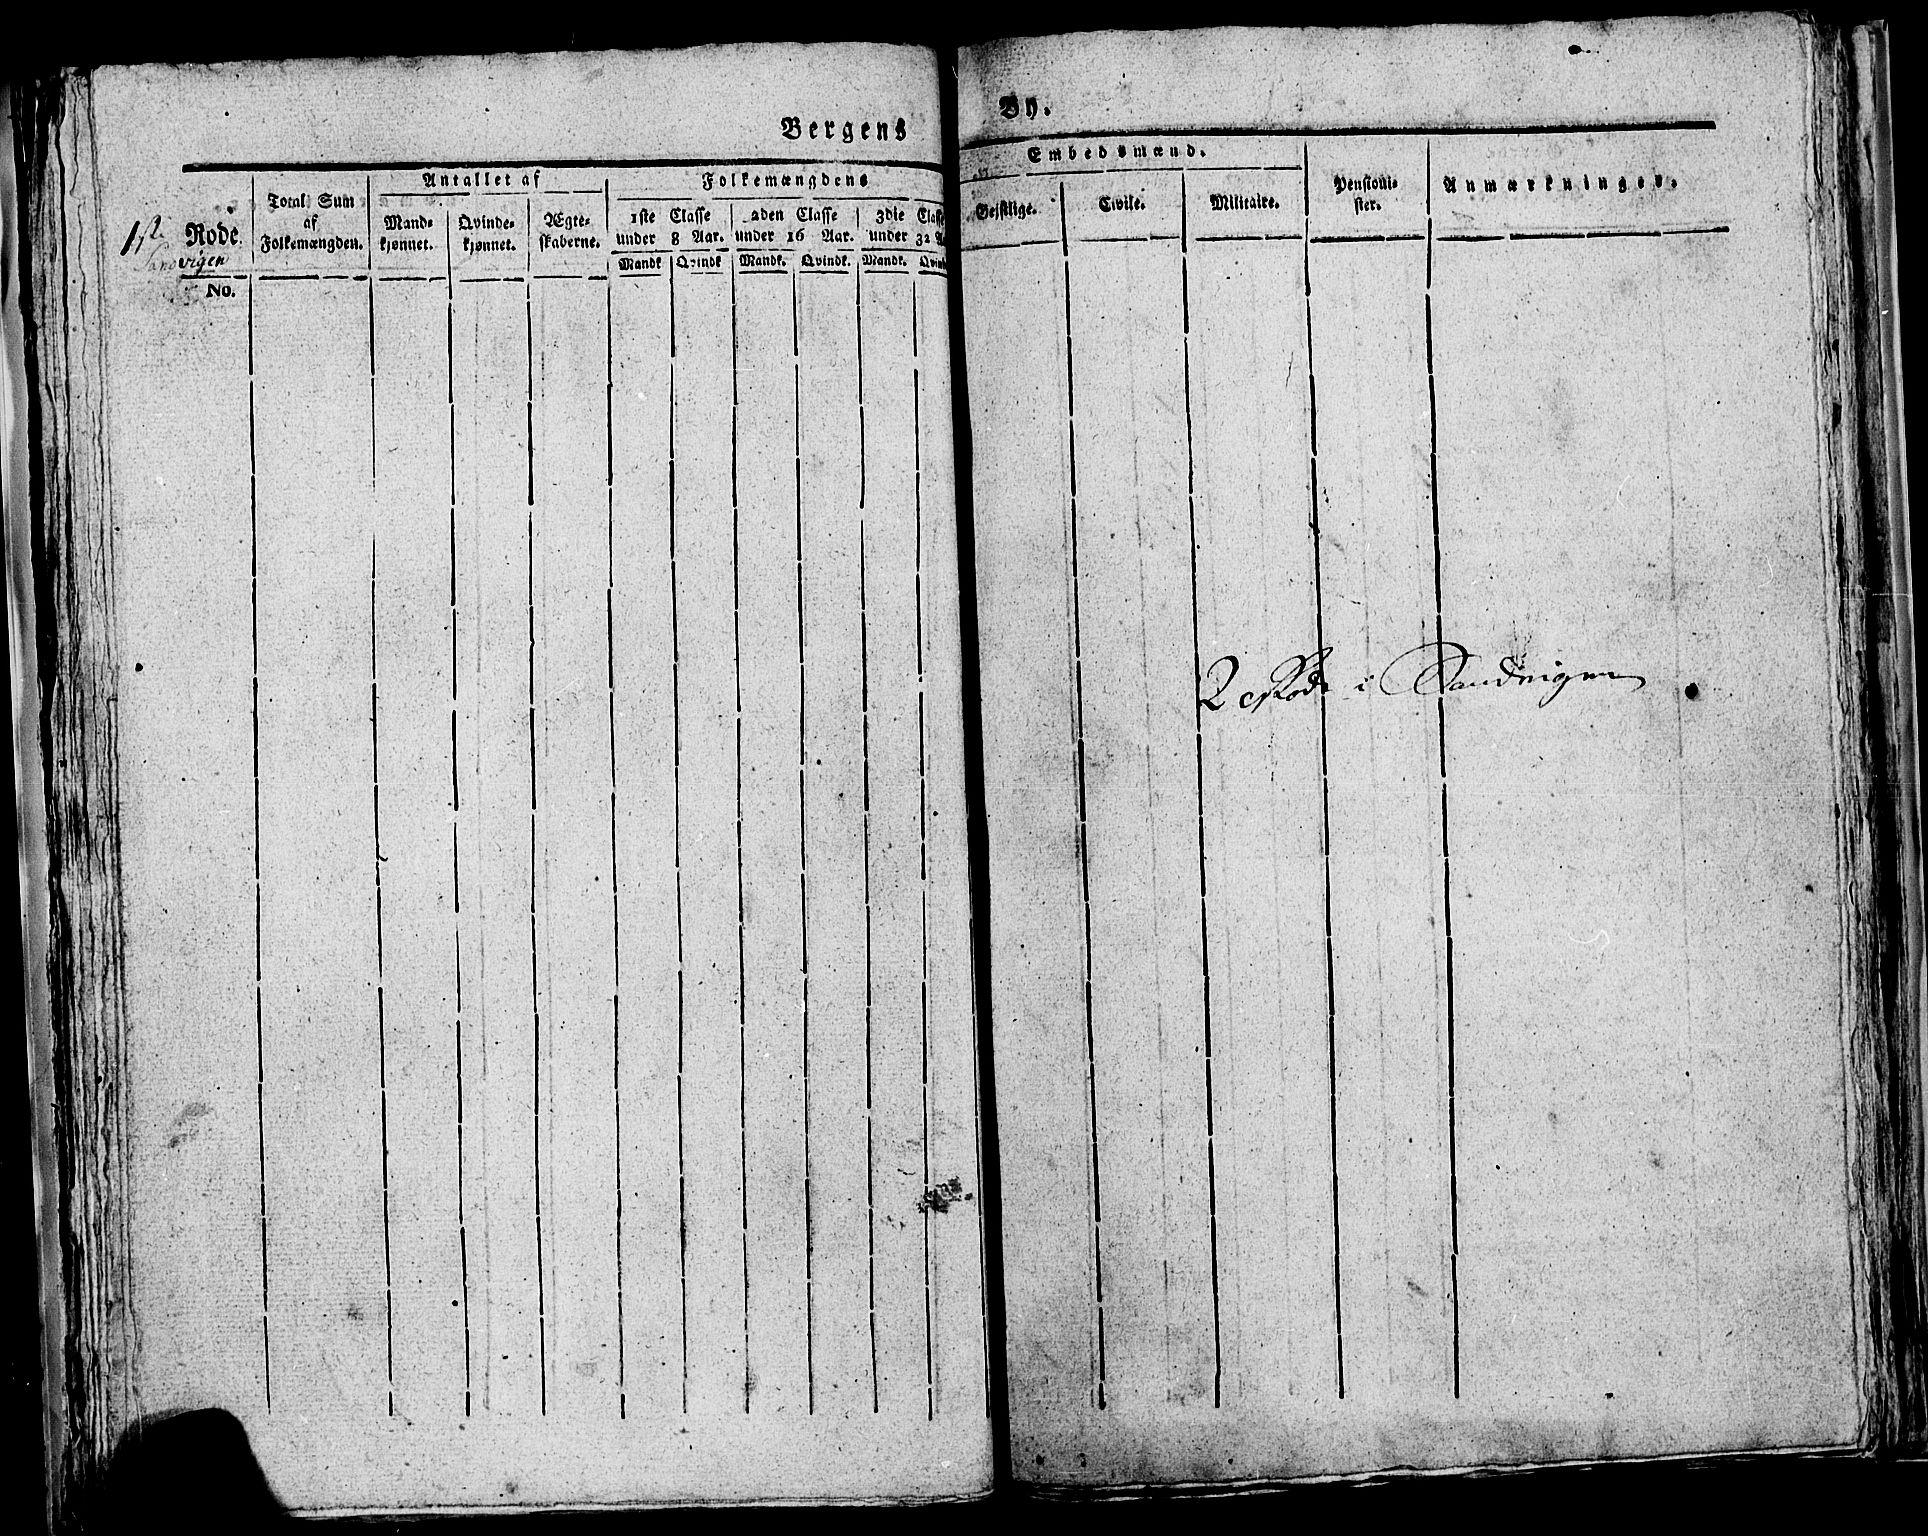 Bergens By.
Antallet af
Folkemængdens
Embedsmænd.
1st Rode.
Sandvigen
No.
Total Sum
af
Folkemængden.
Mand-
kjønnet.
Qvinde-
kjønnet.
Ægte-
skaberne.
1ste Classe
under 8 Aar.
2den Classe
under 16 Aar.
3die Classe
under 32 A
Mandk Qvindk Mandk. Qvindk. Mandk. Qvind
Geistlige.
Civile.
Militaire.
Pensioni-
ster.
Anmærkninger.
2 Rode i Sandvigen